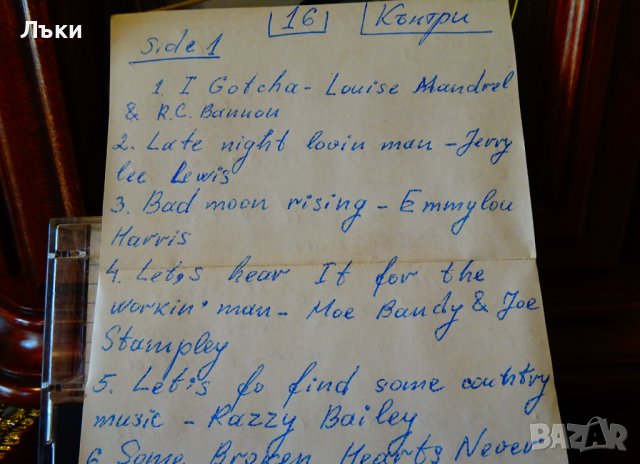 Лъки
16 Кънтри
Side 1
1. I Gotcha - Louise Mandrel
& R.C. Bannon
2. Late night lovin man - Jerry
lee Lewis
3. Bad moon rising - Emmylou
Harris
4. Let,s hear It for the
workin' man - Moe Bandy & Joe
Stampley
5. Let's go find some country
music - Razzy Bailey
6 Some Broken Hearts Never
BAZAR